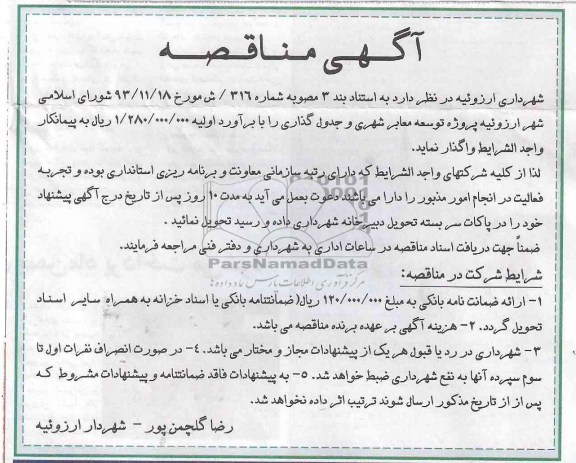 آگهی مناقصه
شهرداری ارزوئیه در نظر دارد به استناد بند ۳ مصوبه شماره ۳۱۶ / ش مورخ ۹۳/۱۱/۱۸ شورای اسلامی
شهر ارزوئیه پروژه توسعه معابر شهری و جدول گذاری را با برآورد اولیه ۱/۲۸۰/۰۰۰/۰۰۰ ریال به پیمانکار
واجد الشرایط واگذار نماید.
لذا از کلیه شرکتهای واجد الشرایط که دارای رتبه سازمانی معاونت و برنامه ریزی استانداری بوده و تجربه
فعالیت در انجام امور مذبور را دارا می باشند دعوت بعمل می آید به مدت ۱۰ روز پس از تاریخ درج آگهی پیشنهاد
خود را در پاکات سر بسته تحویل دبیرخانه شهرداری داده و رسید تحویل نمائید .
ضمناً جهت دریافت اسناد مناقصه در ساعات اداری به شهرداری و دفتر فنی مراجعه فرمایند.
ParsNamadData
شرایط شرکت در مناقصه:
مرکز فرآوری اطلاعات پارس نماد داده ها
۱- ارائه ضمانت نامه بانکی به مبلغ ۱۲۰/۰۰۰/۰۰۰ ریال( ضمانتنامه بانکی یا اسناد خزانه به همراه سایر اسناد
تحویل گردد. ۲- هزینه آگهی بر عهده برنده مناقصه می باشد.
۳- شهرداری در رد یا قبول هر یک از پیشنهادات مجاز و مختار می باشد. ۴- در صورت انصراف نفرات اول تا
سوم سپرده آنها به نفع شهرداری ضبط خواهد شد. ۵- به پیشنهادات فاقد ضمانتنامه و پیشنهادات مشروط که
پس از از تاریخ مذکور ارسال شوند ترتیب اثر داده نخواهد شد.
رضا گلچمن پور - شهردار ارزوئیه